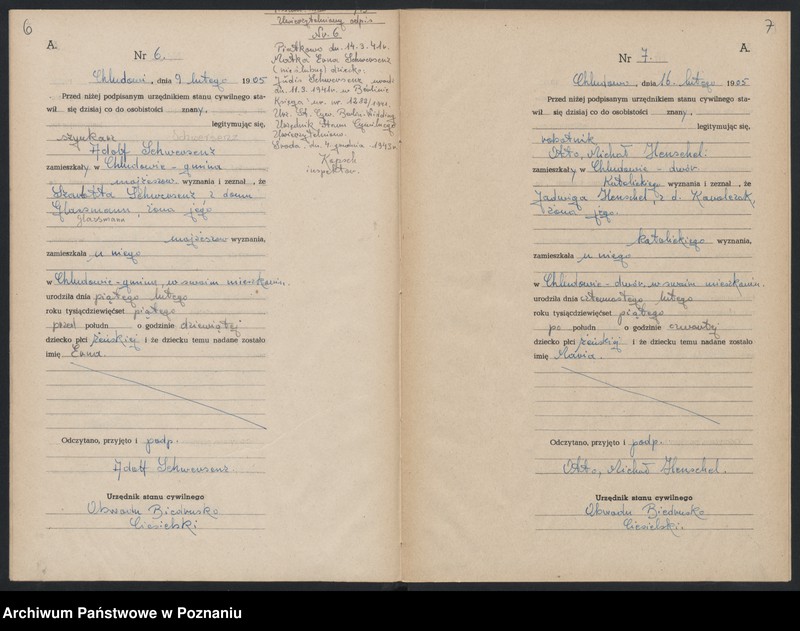 6
A.
Nr 6.
Chludowo, dnia 9 lutego 1905
Przed niżej podpisanym urzędnikiem stanu cywilnego sta-
wił się dzisiaj co do osobistości znany.
legitymując się,
szynkarz
Adolf Schwersenz
zamieszkały w Chludowie - gmina
mojżeszow. wyznania i zeznał, że
Schwersenz z domu
Glassmann, żona jego
Glassmann
mojżeszow wyznania,
zamieszkała u niego
w Chludowie - gmina, w swoim mieszkaniu.
urodziła dnia piątego lutego
roku tysiącdziewięćset piątego
przed połudn o godzinie dziewiątej
dziecko płci żeńskiej i że dziecku temu nadane zostało
imię Enna.
Odczytano, przyjęto i podp.
Adolf Schwersenz
Urzędnik stanu cywilnego
Obwodu Biedrusko
Ciesielski
Uwierzytelniony odpis
Nr. 6
Piątkowo dn. 14.3.41r.
Matka Enna Schwersenz
(nieślubne) dziecko.
Judis Schwersenz urodz.
dn. 11.3.1941r. w Berlinie
Księga ur. nr.
Urz. St. Cyw. Berlin-Wedding
Urzędnik Stanu Cywilnego
Uwierzytelniono.
Środa, dn. 4. grudnia 1943r.
inspektor.
7
A.
Nr 7.
Chludowo, dnia 16. lutego 1905
Przed niżej podpisanym urzędnikiem stanu cywilnego sta-
wił się dzisiaj co do osobistości znany.
legitymując się,
robotnik
Otto, Michał Henschel.
zamieszkały w Chludowie - dwór
Katolickiego wyznania i zeznał, że
Jadwiga Henschel, z d. Kawalczak,
żona jego.
katolickiego wyznania,
zamieszkała u niego
w Chludowie - dwór, w swoim mieszkaniu.
urodziła dnia czternastego lutego
roku tysiącdziewięćset piątego
po połudn o godzinie czwartej
dziecko płci żeńskiej i że dziecku temu nadane zostało
imię Maria.
Odczytano, przyjęto i podp.
Otto, Michał Henschel.
Urzędnik stanu cywilnego
Obwodu Biedrusko
Ciesielski.
Archiwum Państwowe w Poznaniu